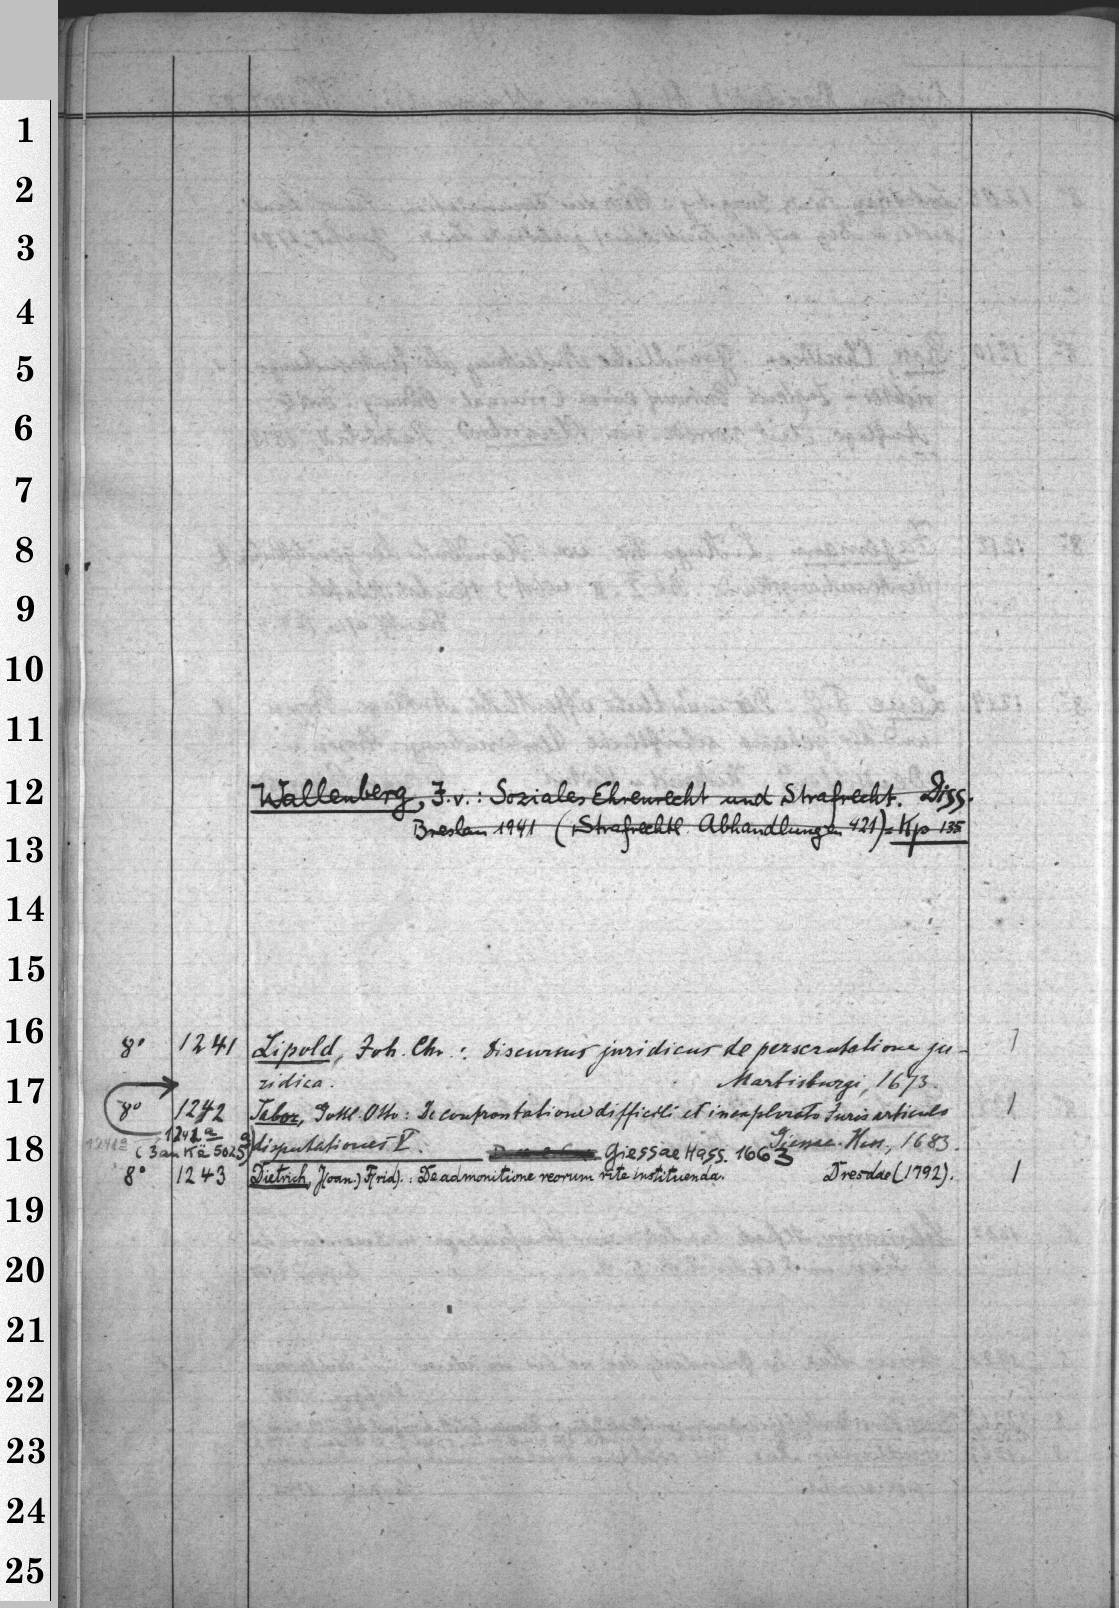 1
2
3
4
5
6
7
8
9
10
11
12
Wallenberg, J. v.: Soziales Ehrenrecht und Strafrecht. Diss.
Breslau 1941 (Strafrechtl. Abhandlungen 421) = Kp 135
13
14
15
16
8° 1241 Lipold, Joh. Chr.: Discursus juridicus de perscrutatione ju- 1
ridica. Martisburgi, 1673.
17
8° 1242 Tabor, Joh. Otto: De confrontatione difficili et inexplorato Juris articulo 1
1242a disputationes V. Giessae Hass., 1683.
18
(3 an Kä 5025a) Giessae Hass. 1663
8° 1243 Dietrich, J(oan.) F(rid).: De admonitione reorum rite instituenda. Dresdae (1792). 1
19
20
21
22
23
24
25